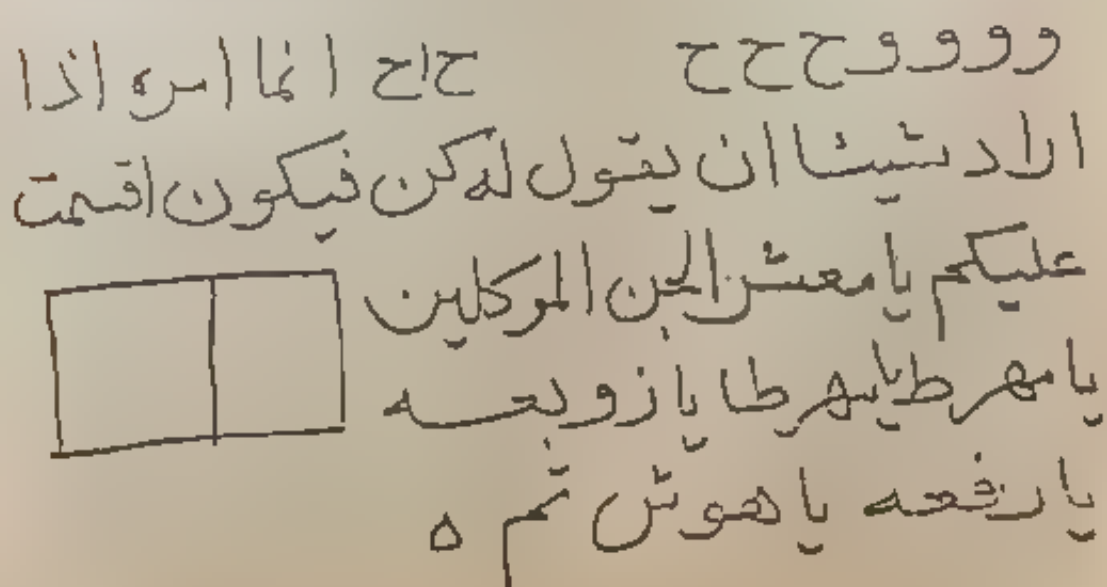 و و و و ح ح ح ح ا ح انما امره اذا
اراد شيئا ان يقول له كن فيكون اقسمت
عليكم يا معشر الجن الموكلين
يا مهرط يا سهرطا يا زوبعه
يا رفعه يا هوش تم ه